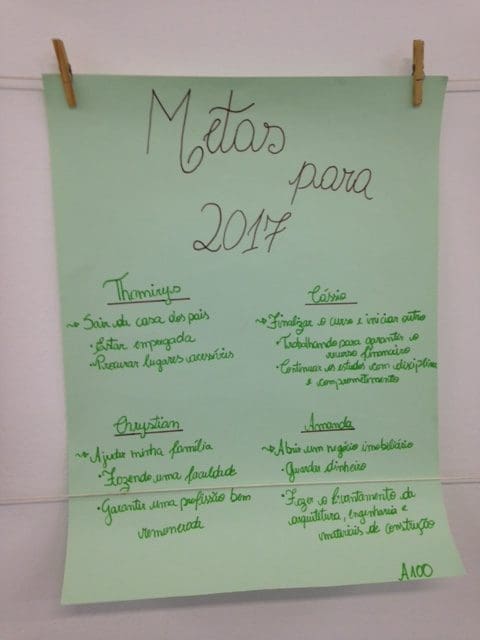 Metas
para
2017
Thamirys
~> Sair da casa dos pais
• Estar empregada
• Procurar lugares acessíveis
Cássio
~> Finalizar o curso e iniciar outro
• Trabalhando para garantir o
recurso financeiro
• Continuar os estudos com disciplina
e comprometimento
Chrystian
~> Ajudar minha família
• Fazendo uma faculdade
• Garantir uma profissão bem
remunerada
Amanda
~> Abrir um negócio imobiliário
• Guardar dinheiro
• Fazer o levantamento da
arquitetura, engenharia e
materiais de construção
A100